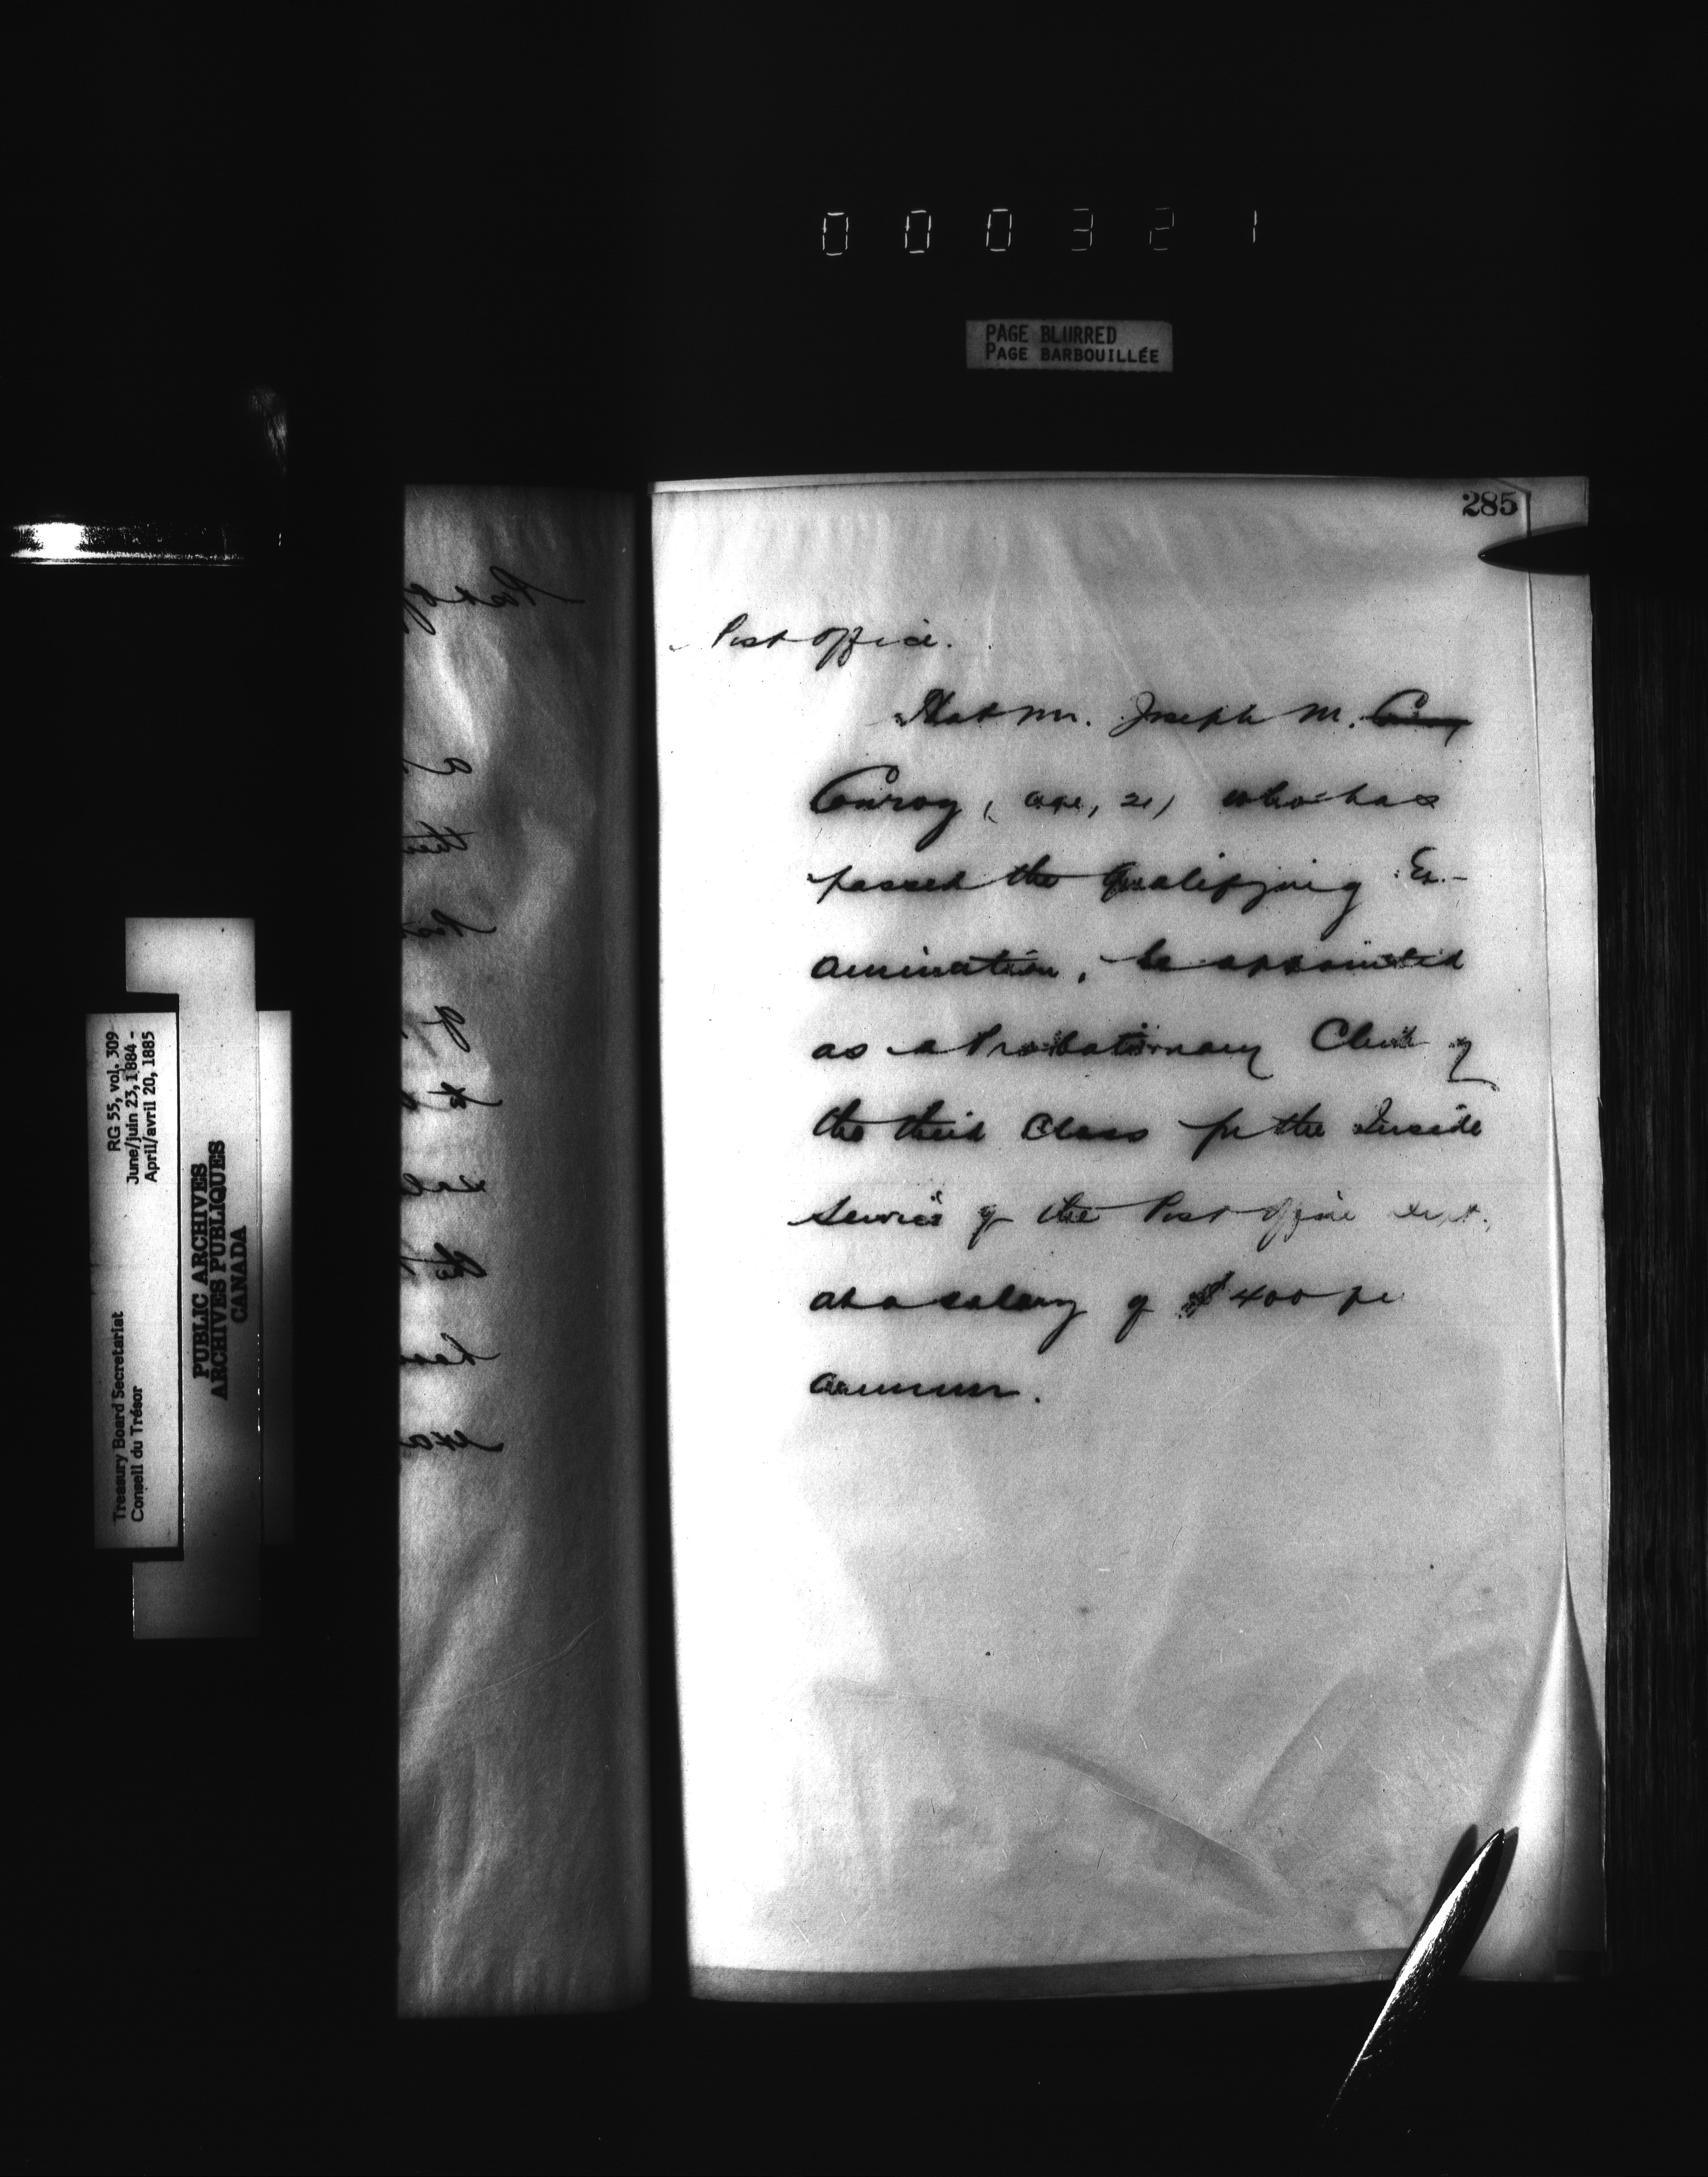 000321
PAGE BLURRED
PAGE BARBOUILLÉE
285
Post office.
That Mr. Joseph M. Conroy
Conroy (age, 21) who has
passed the Qualifying Ex-
amination, be appointed
as a Probationary Clerk of
the third Class for the Inside
Service of the Post Office Dept.,
at a salary of $400 per
annum.
RG 55, vol. 309
June/juin 23, 1884 -
April/avril 20, 1885
Treasury Board Secretariat
Conseil du Trésor
PUBLIC ARCHIVES
ARCHIVES PUBLIQUES
CANADA